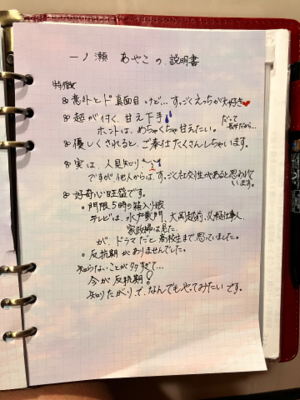 一ノ瀬 あやこ の 説明書
特徴
意外とド真面目 けど… すっごくえっちが大好き♥
超が付く、甘え下手
だって
長女だから…
ホントは、めちゃくちゃ甘えたい。
優しくされると、ご奉仕たくさんしちゃいます。
実は、人見知り
ですが他人からは、すっごく社交性があると思われて
います。
好奇心旺盛です。
・門限5時の箱入り娘
テレビは、水戸黄門、大岡越前、必殺仕事人、
家政婦は見た
が、ドラマだと高校生まで思っていました。
・反抗期がありませんでした。
知らないことが多すぎて…
今が反抗期!
知りたがりで、なんでもやってみたいです。